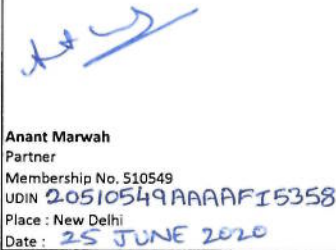 Anant Marwah
Partner
Membership No. 510549
UDIN 20510549AAAAFI5358
Place : New Delhi
Date : 25 JUNE 2020